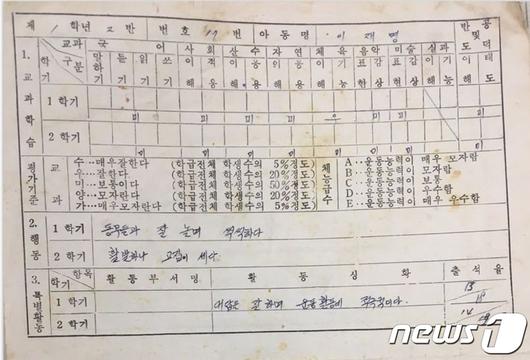 제 1 학년 2 반 번호 19 번 아동명 이재명
1. 교과학습
교과 구분 학기
국어 사회 산수 자연 체육 음악 미술 실과 반공 및 도덕
말하기 듣기 읽기 쓰기 이해 적용 이해 적용 이해 적용 이해 기능 표현 감상 표현 감상 이해 기능 이해 태도
1 학기 미 미 우 미 미 미
2 학기 미 미 미 미 미 미
평가기준
교과
수…매우잘한다 (학급전체 학생수의 5%정도)
우…잘한다 (학급전체 학생수의 20%정도)
미…보통이다 (학급전체 학생수의 50%정도)
양…모자란다 (학급전체 학생수의 20%정도)
가…매우모자란다 (학급전체 학생수의 5%정도)
체능급수
A…운동능력이 매우 모자람
B…운동능력이 모자람
C…운동능력이 보통
D…운동능력이 우수함
E…운동능력이 매우 우수함
2. 행동
1 학기 동무들과 잘 놀며 씩씩하다
2 학기 활발하나 고집이 세다
3. 특별활동
항목 학기 활동부서명 활동상황 출석율
1 학기
2 학기
news1